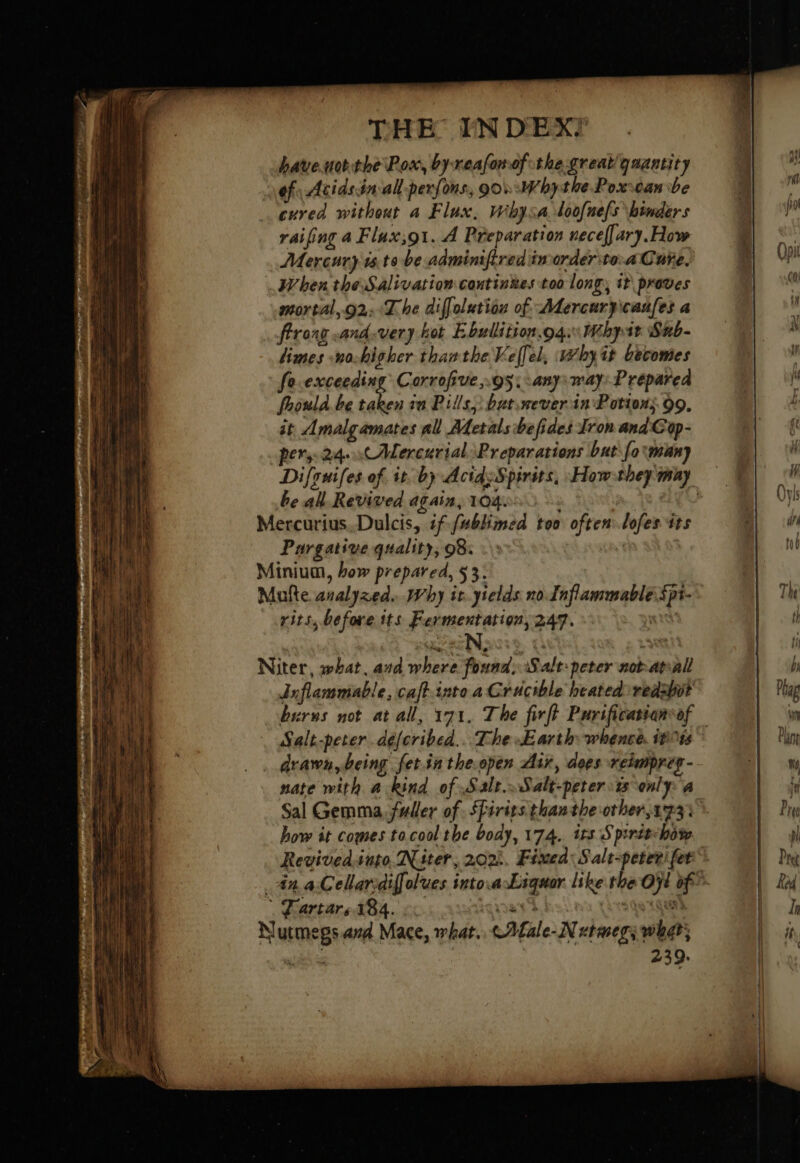 THE INDEX.
have not the Pox, by reaſon of the great quantity
of Acids in all perſons, 90. Why the Pox can be
cured without a Flux. Why a looſneſs hinders
raiſing a Flux, 91. A Preparation neceſſary. How
Mercury is to be adminiſtred in order to a Cure.
When the Salivation continues too long, it proves
mortal, 92. The diſſolution of Mercury cauſes a
ſtrong and very hot Ebullition. 94. Why it Sub-
limes no higher than the Veſſel, Why it becomes
ſo exceeding Corroſive, 95. any way Prepared
ſhould be taken in Pills, but never in Potion; 99.
it Amalgamates all Metals beſides Iron and Cop-
per, 24. Mercurial Preparations but ſo many
Diſguiſes of it by Acid Spirits, How they may
be all Revived again, 104.
Mercurius Dulcis, if ſublimed too often loſes its
Purgative quality, 98.
Minium, how prepared, 53.
Muſte analyzed. Why it yields no Inflammable Spi-
rits, before its Fermentation, 247.
N.
Niter, what, and where found, Salt-peter not at all
Inflammable, caſt into a Crucible heated red-hot
burns not at all, 171. The firſt Purification of
Salt-peter deſcribed. The Earth whence it is
drawn, being ſet in the open Air, does reimpreg-
nate with a kind of Salt. Salt-peter is only a
Sal Gemma fuller of Spirits than the other, 173.
how it comes to cool the body, 174. its Spirit how
Revived into Niter, 202. Fixed Salt-peter ſet
in a Cellar diſſolves into a Liquor like the Oyl of
Tartar, 184.
Nutmegs and Mace, what. Male-Nutmeg, what,
239.